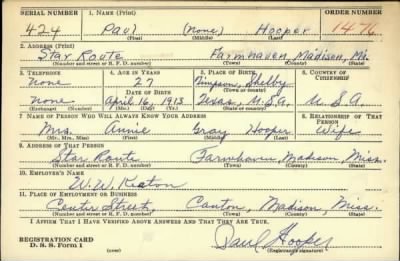 SERIAL NUMBER 1. NAME (Print) ORDER NUMBER
424 Paul (none) Hooper 1476
(First) (Middle) (Last)
2. ADDRESS (Print)
Star Route Farmhaven, Madison, Ms.
(Number and street or R. F. D. number) (Town) (County) (State)
3. TELEPHONE 4. AGE IN YEARS 5. PLACE OF BIRTH 6. COUNTRY OF CITIZENSHIP
none 27 Timpson, Shelby
(Town) (County)
DATE OF BIRTH
none April 16, 1913 Texas, U.S.A. U.S.A.
(Exchange) (Number) (Mo.) (Day) (Yr.) (State or country)
7. NAME OF PERSON WHO WILL ALWAYS KNOW YOUR ADDRESS 8. RELATIONSHIP OF THAT PERSON
Mrs. Annie Gray Hooper Wife
(Mr., Mrs., Miss) (First) (Middle) (Last)
9. ADDRESS OF THAT PERSON
Star Route Farmhaven, Madison, Miss.
(Number and street or R. F. D. number) (Town) (County) (State)
10. EMPLOYER'S NAME
W. W. Keaton
11. PLACE OF EMPLOYMENT OR BUSINESS
Center Street, Canton, Madison, Miss.
(Number and street or R. F. D. number) (Town) (County) (State)
I AFFIRM THAT I HAVE VERIFIED ABOVE ANSWERS AND THAT THEY ARE TRUE.
REGISTRATION CARD
D. S. S. Form 1 Paul Hooper
(over) (Registrant's signature)